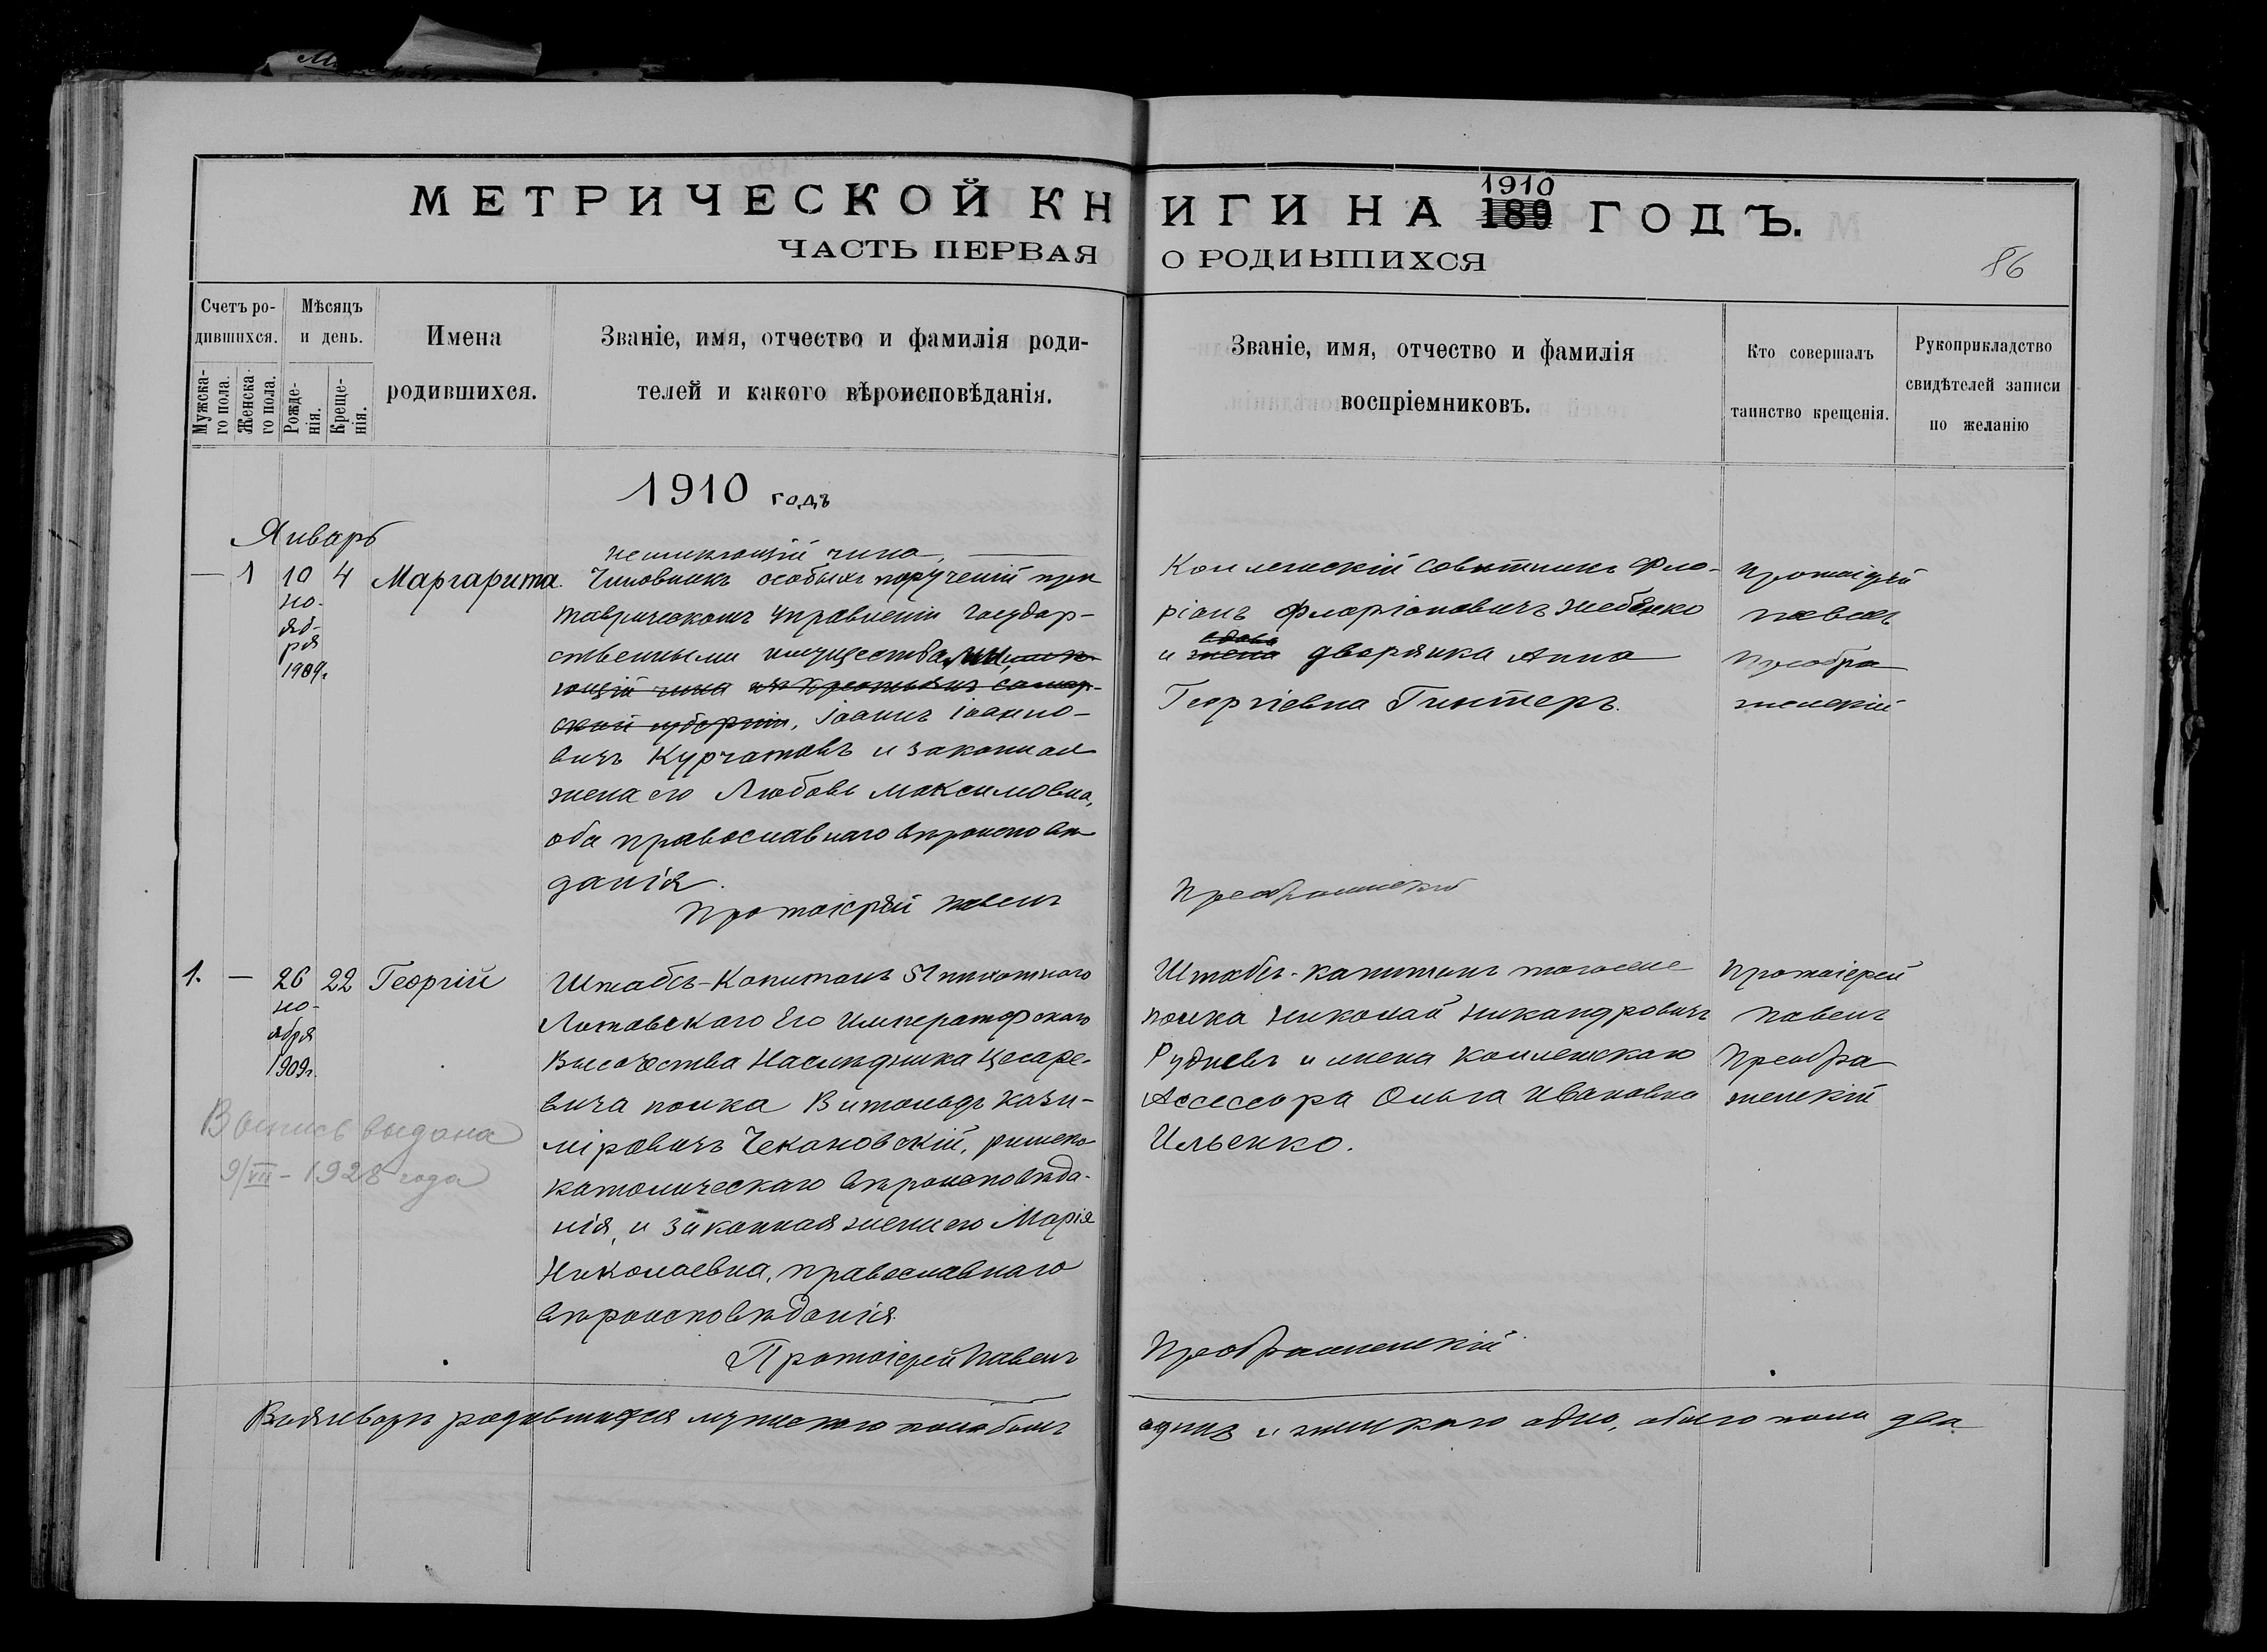 МЕТРИЧЕСКОЙ КНИГИ НА 1910 189 ГОДЪ.
ЧАСТЬ ПЕРВАЯ О РОДИВШИХСЯ
86
Счетъ ро-
дившихся.
Мужска-
го пола.
Женска-
го пола.
Мѣсяцъ
и день.
Рожде-
нія.
Креще-
нія.
Имена
родившихся.
Званіе, имя, отчество и фамилія роди-
телей и какого вѣроисповѣданія.
Званіе, имя, отчество и фамилія
воспріемниковъ.
Кто совершалъ
таинство крещенія.
Рукоприкладство
свидѣтелей записи
по желанію
1910 годъ
Январь
— 1 10 4 Маргарита.
но-
яб-
ря
1909г.
неимѣющій чина,
Чиновникъ особыхъ порученій при
Таврическомъ Управленіи Государ-
ственными имуществами, имѣ-
ющій чина изъ крестьянъ Самар-
ской губерніи, Іоаннъ Іоанно-
вичъ Курчатовъ и законная
жена его Любовь Максимовна,
оба православнаго вѣроисповѣ
данія.
Протоіерей Павелъ
Коллежскій Совѣтникъ Фло-
ріанъ Флоріановичъ Жебенко
вдова
и жена дворянка Анна
Георгіевна Гинтеръ.
Протоіерей
Павелъ
Преобра
женскій
Преображенскій
1. — 26 22 Георгій
но-
ября
1909г.
Выпись выдана
9/VII - 1928 года
Штабсъ-Капитанъ 51 пѣхотнаго
Литовскаго Его Императорскаго
Высочества Наслѣдника Цесаре-
вича полка Витольдъ Кази-
міровичъ Чекановскій, римско
католическаго вѣроисповѣда-
нія, и законная жена его Марія
Николаевна, православнаго
вѣроисповѣданія.
Протоіерей Павелъ
Штабсъ-Капитанъ тогоже
полка Николай Никандровичъ
Рудневъ и жена Коллежскаго
Асессора Ольга Ивановна
Ильенко.
Протоіерей
Павелъ
Преобра
женскій
Преображенскій
Въ январѣ родившихся мужескаго пола былъ
одинъ и женскаго одно, обоего пола два.